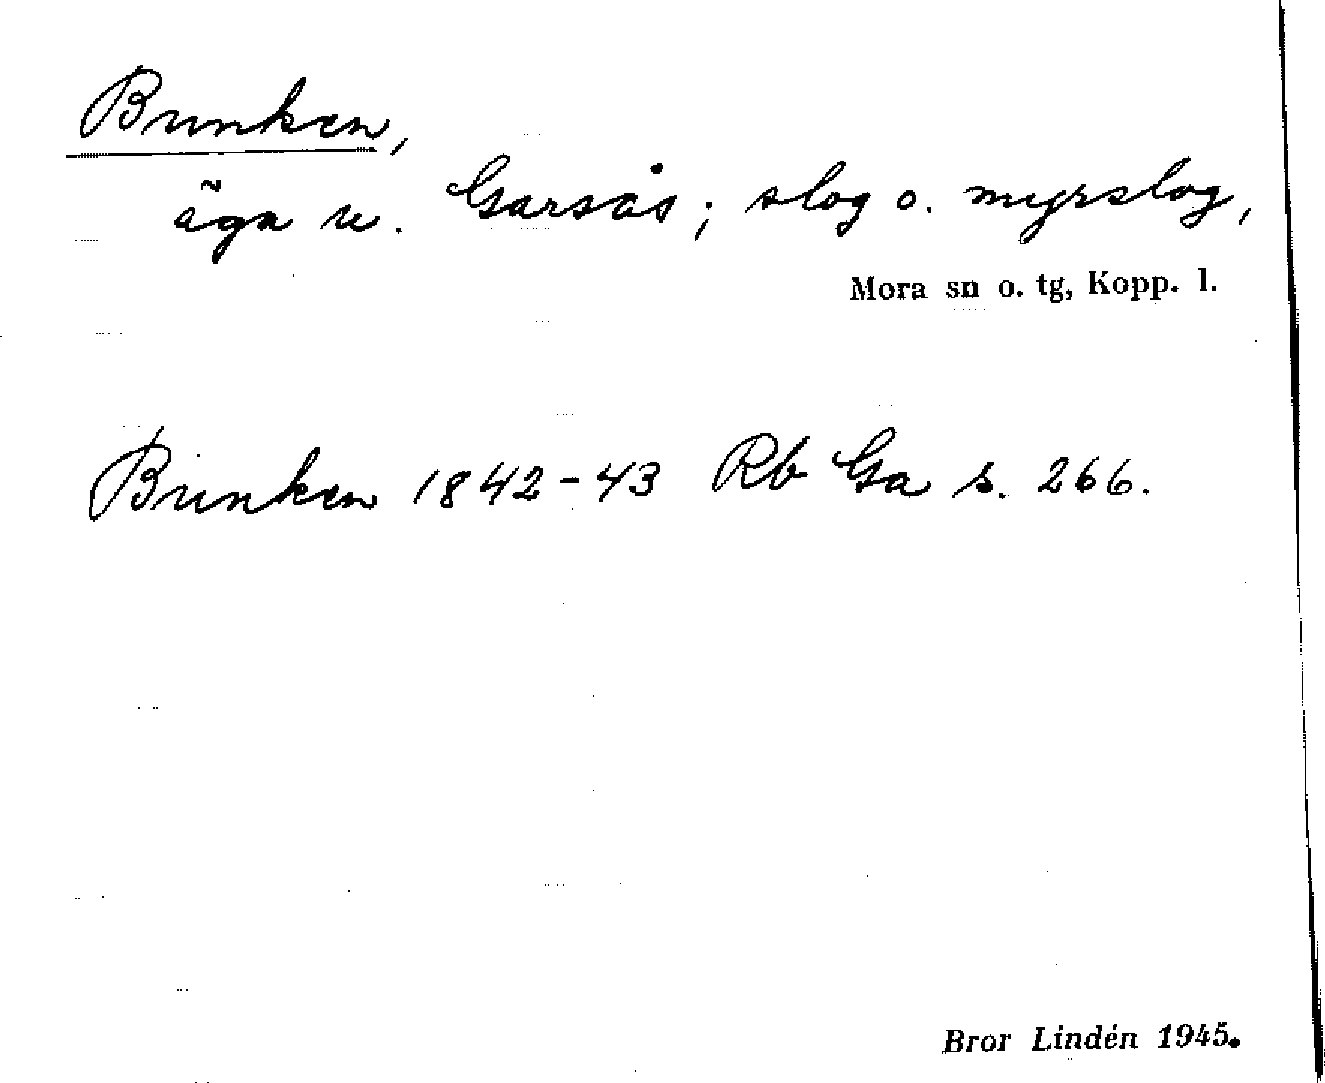 Bunken,
äga u. Garsås; slog o. myrslog,
Mora sn o. tg, Kopp. l.
Bunken 1842-43 Rb Ga s. 266.
Bror Lindén 1945.